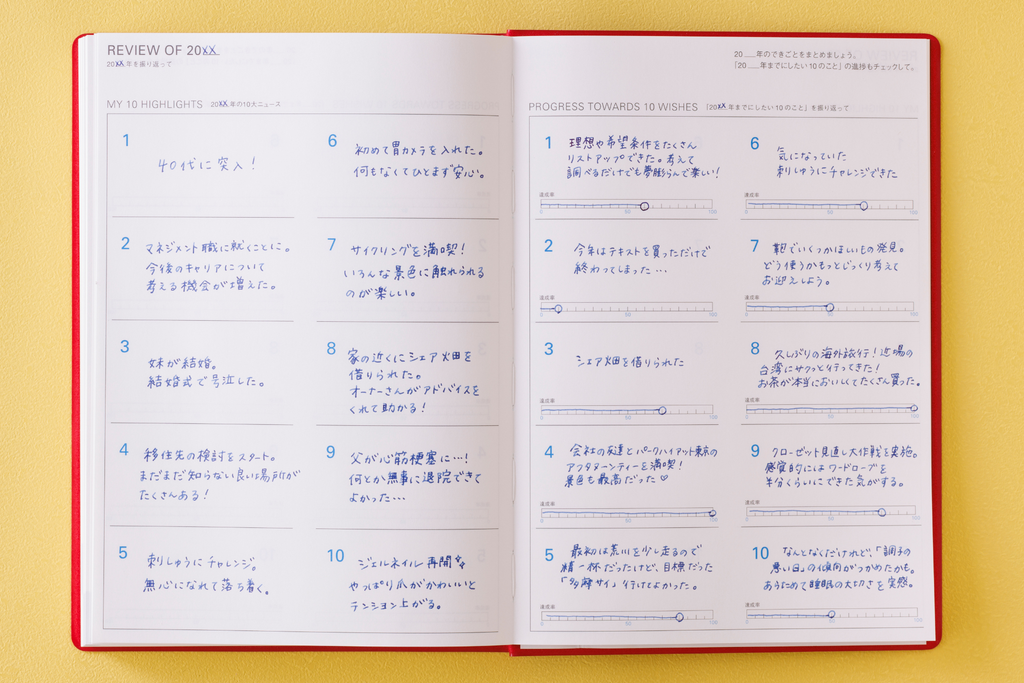 REVIEW OF 20XX
20XX年を振り返って
MY 10 HIGHLIGHTS 20XX年の10大ニュース
1
40代に突入！
2
マネジメント職に就くことに。
今後のキャリアについて
考える機会が増えた。
3
妹が結婚。
結婚式で号泣した。
4
移住先の検討をスタート。
まだまだ知らない良い場所が
たくさんある！
5
刺しゅうにチャレンジ。
無心になれて落ち着く。
6
初めて胃カメラを入れた。
何もなくてひとまず安心。
7
サイクリングを満喫！
いろんな景色に触れられる
のが楽しい。
8
家の近くにシェア畑を
借りられた。
オーナーさんがアドバイスを
くれて助かる！
9
父が心筋梗塞に…！
何とか無事に退院できて
よかった…
10
ジェルネイル再開
やっぱり爪がかわいいと
テンション上がる。
20__年のできごとをまとめましょう。
「20__年までにしたい10のこと」の進捗もチェックして。
PROGRESS TOWARDS 10 WISHES 「20XX年までにしたい10のこと」を振り返って
1
理想や希望条件をたくさん
リストアップできた。考えて
調べるだけでも夢膨らんで楽しい！
達成率
0 50 100
2
今年はテキストを買っただけで
終わってしまった…
達成率
0 50 100
3
シェア畑を借りられた
達成率
0 50 100
4
会社の友達とパークハイアット東京の
アフタヌーンティーを満喫！
景色も最高だった♡
達成率
0 50 100
5
最初は荒川を少し走るので
精一杯だったけど、目標だった
「多摩サイ」行けてよかった。
達成率
0 50 100
6
気になっていた
刺しゅうにチャレンジできた
達成率
0 50 100
7
鞄でいくつかほしいもの発見。
どう使うかもっとじっくり考えて
お迎えしよう。
達成率
0 50 100
8
久しぶりの海外旅行！近場の
台湾にサクッと行ってきた！
お茶が本当においしくてたくさん買った。
達成率
0 50 100
9
クローゼット見直し大作戦を実施。
感覚的にはワードローブを
半分くらいにできた気がする。
達成率
0 50 100
10
なんとなくだけれど、「調子の
悪い日」の傾向がつかめたかも。
あらためて睡眠の大切さを実感。
達成率
0 50 100